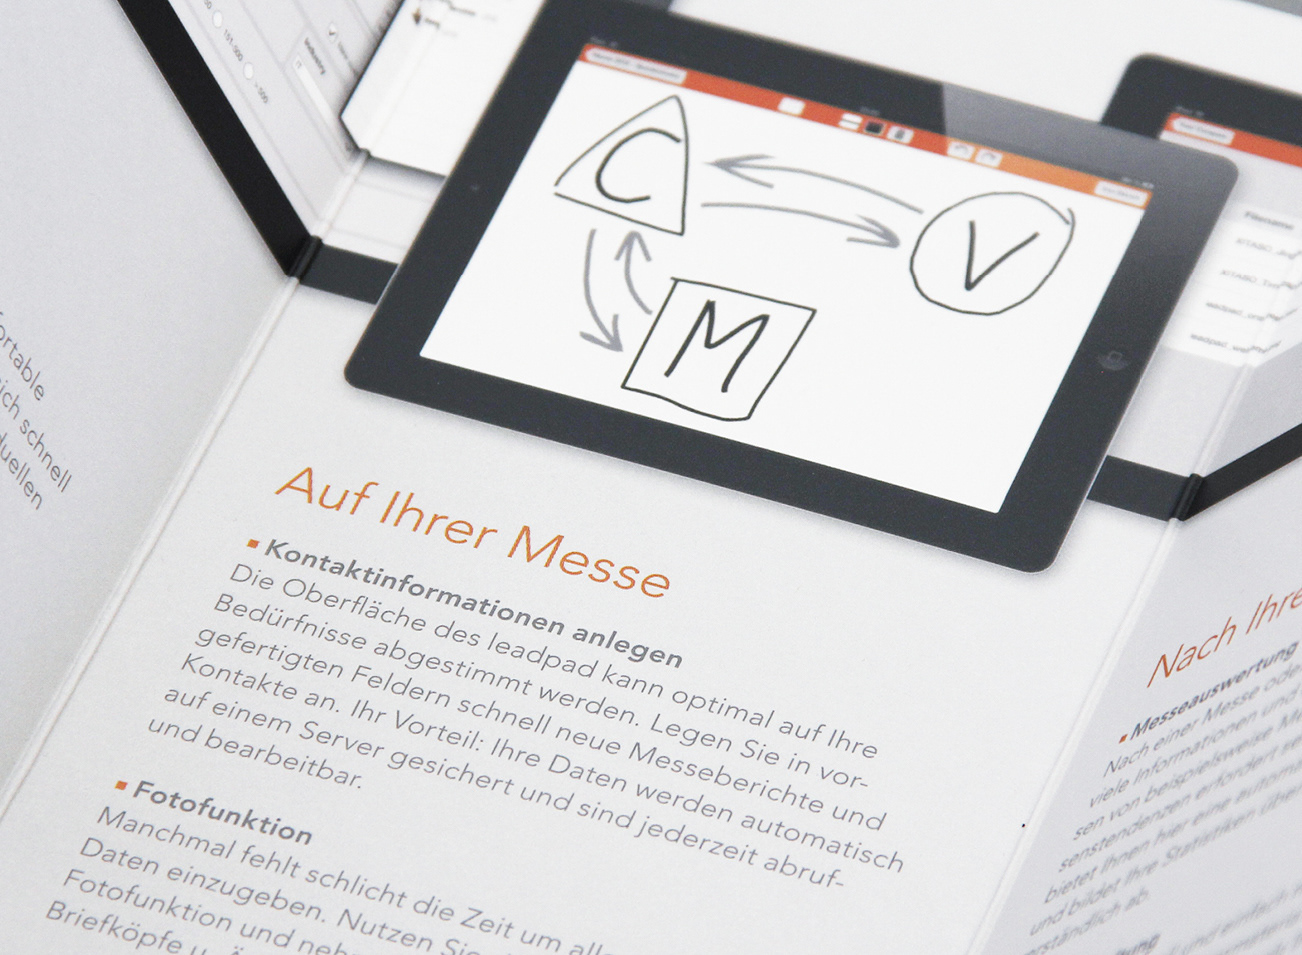 151-500
> 500
Industry
IT
C
V
M
Filename
ortable
ich schnell
duellen
Auf Ihrer Messe
Kontaktinformationen anlegen
Die Oberfläche des leadpad kann optimal auf Ihre
Bedürfnisse abgestimmt werden. Legen Sie in vor-
gefertigten Feldern schnell neue Messeberichte und
Kontakte an. Ihr Vorteil: Ihre Daten werden automatisch
auf einem Server gesichert und sind jederzeit abruf-
und bearbeitbar.
Fotofunktion
Manchmal fehlt schlicht die Zeit um alle
Daten einzugeben. Nutzen Sie
Fotofunktion und neh
Briefköpfe u.
Nach Ihre
Messeauswertung
Nach einer Messe ode
viele Informationen und
sen von beispielsweise Me
senstendenzen erfordert se
bietet Ihnen hier eine automa
und bildet Ihre Statistiken über
rständlich ab.